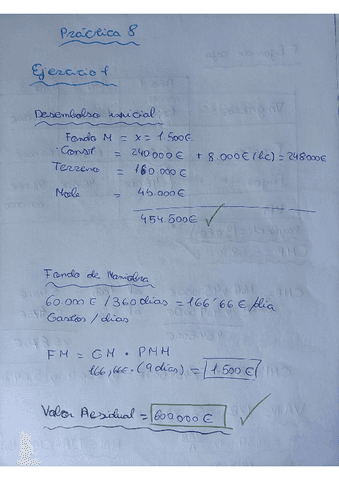 Práctica 8
Ejercicio 1
Desembolso inicial:
Fondo M = x = 1.500€
Const = 240.000€ + 8.000€ (lic) = 248000€
Terreno = 160.000€
Mob = 45.000€
454.500€ ✓
Fondo de Maniobra
60.000€ / 360 dias = 166'66€/dia
Gastos / dias
FM = GM · PMM
166,66€ · (9 dias) = 1.500€
Valor Residual = 600.000€ ✓